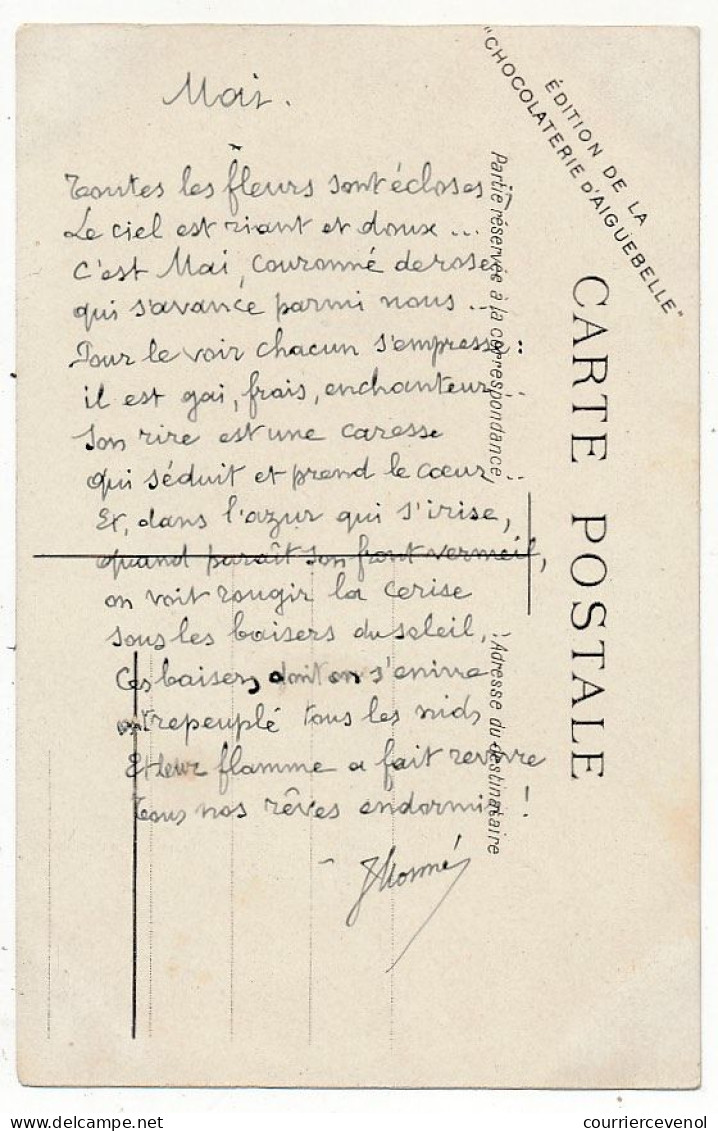 Mai.
Toutes les fleurs sont écloses
Le ciel est riant et doux...
C'est Mai, couronné de roses
qui s'avance parmi nous...
Pour le voir chacun s'empresse:
il est gai, frais, enchanteur...
Son rire est une caresse
qui séduit et prend le cœur...
Et, dans l'azur qui s'irise,
quand paraît son front vermeil,
on voit rougir la cerise
sous les baisers du soleil,
Ces baisers dont on s'enivre
ont repeuplé tous les nids
Et leur flamme a fait revivre
Tous nos rêves endormis!
ÉDITION DE LA
"CHOCOLATERIE D'AIGUEBELLE"
CARTE POSTALE
Partie réservée à la correspondance
Adresse du destinataire
courriercevenol